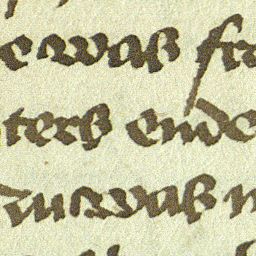 e was fra
ters ende
du was n